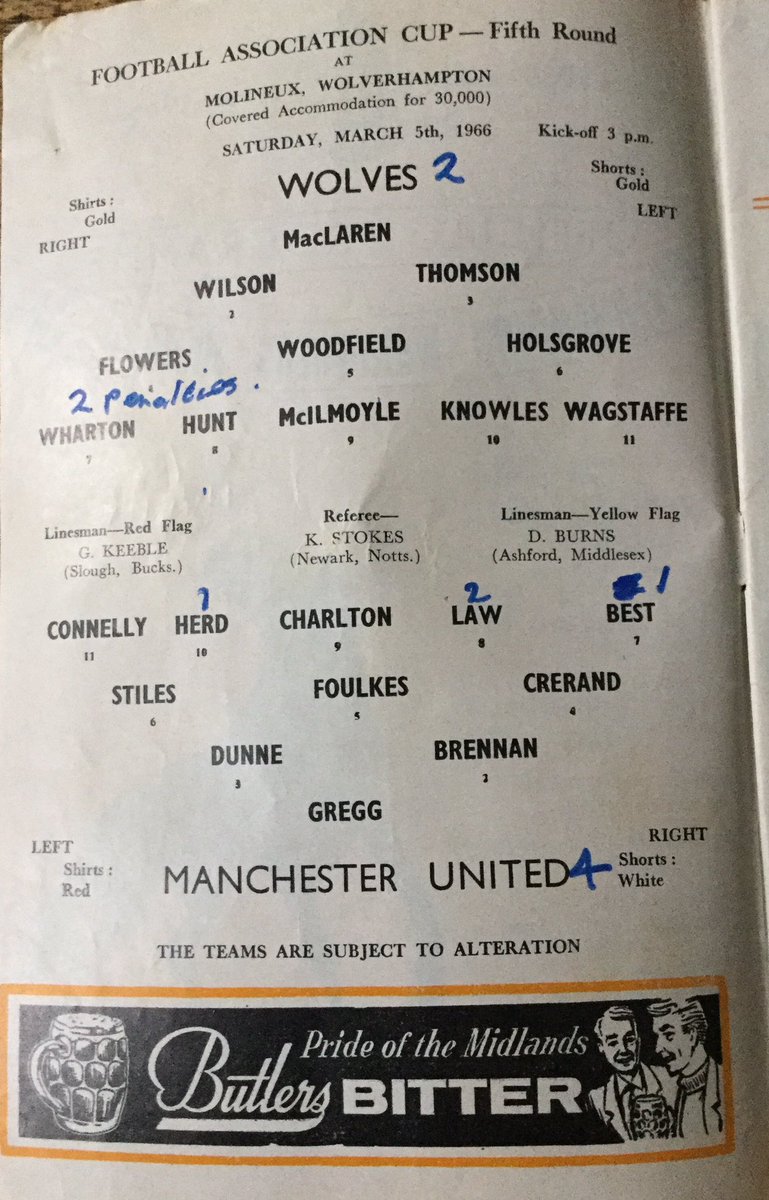 FOOTBALL ASSOCIATION CUP — Fifth Round
AT
MOLINEUX, WOLVERHAMPTON
(Covered Accommodation for 30,000)
SATURDAY, MARCH 5th, 1966 Kick-off 3 p.m.
WOLVES 2
Shirts : Gold
Shorts : Gold
RIGHT LEFT
MacLAREN
WILSON THOMSON
2 3
FLOWERS WOODFIELD HOLSGROVE
5 6
2 Penalties.
WHARTON HUNT McILMOYLE KNOWLES WAGSTAFFE
7 8 9 10 11
Linesman—Red Flag
G. KEEBLE
(Slough, Bucks.)
Referee—
K. STOKES
(Newark, Notts.)
Linesman—Yellow Flag
D. BURNS
(Ashford, Middlesex)
1 2 1
CONNELLY HERD CHARLTON LAW BEST
11 10 9 8 7
STILES FOULKES CRERAND
6 5 4
DUNNE BRENNAN
3 2
GREGG
LEFT RIGHT
Shirts : Red
MANCHESTER UNITED 4
Shorts : White
THE TEAMS ARE SUBJECT TO ALTERATION
Pride of the Midlands
Butlers BITTER